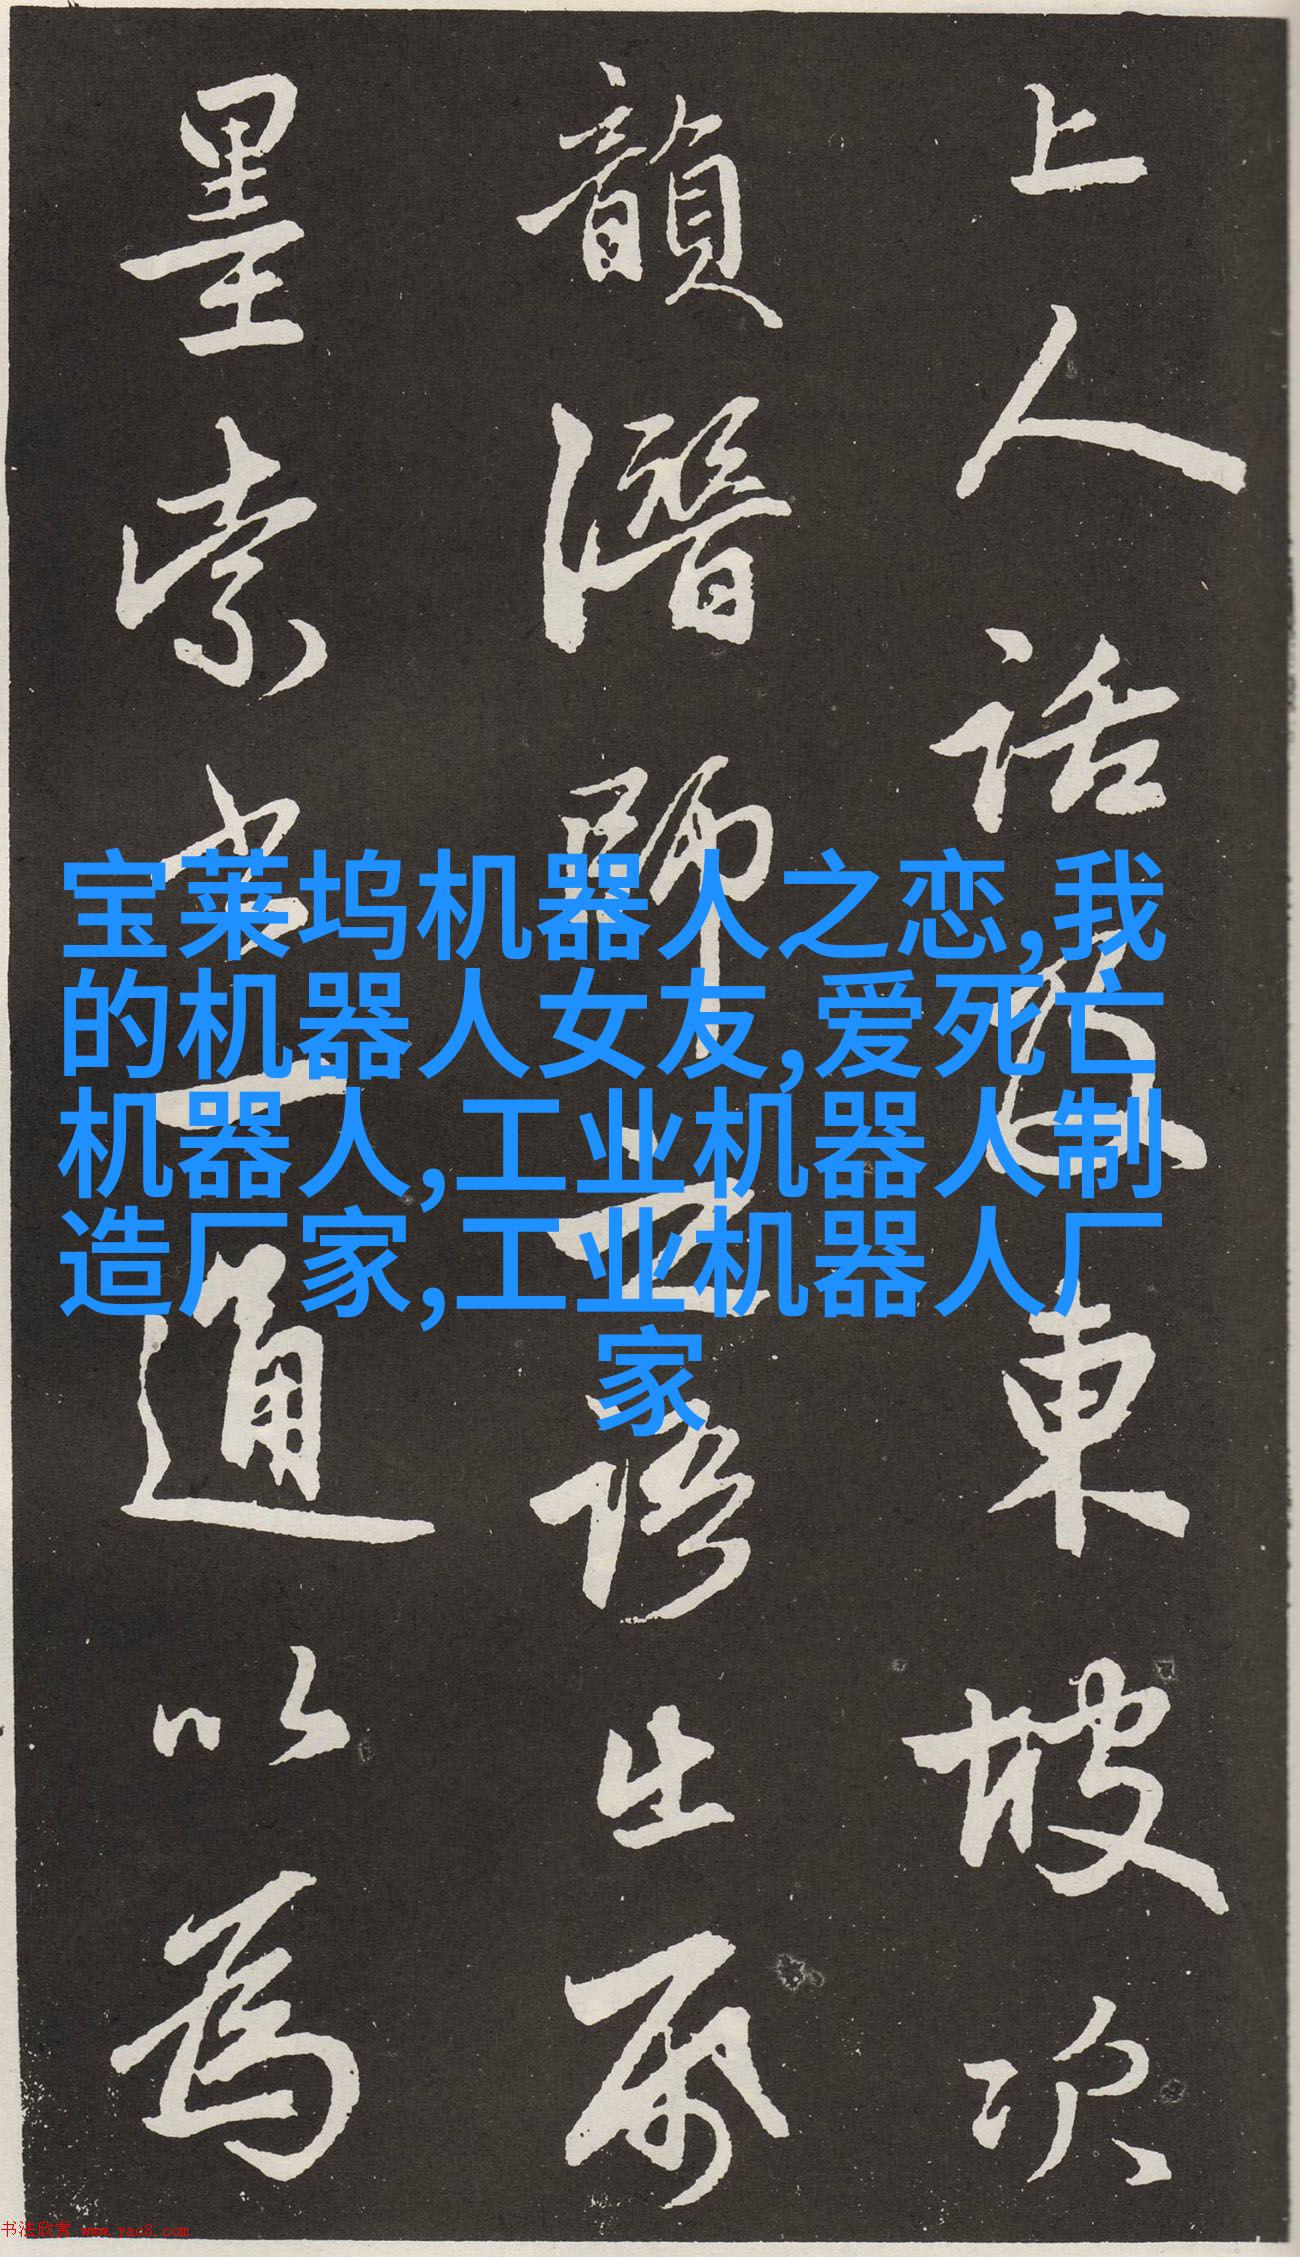 上人話東坡次
韻潛師語出
墨索書一通以為
宝莱坞机器人之恋,我
的机器人女友,爱死亡
机器人,工业机器人制
造厂家,工业机器人厂
家
书法欣赏 www.yac8.com